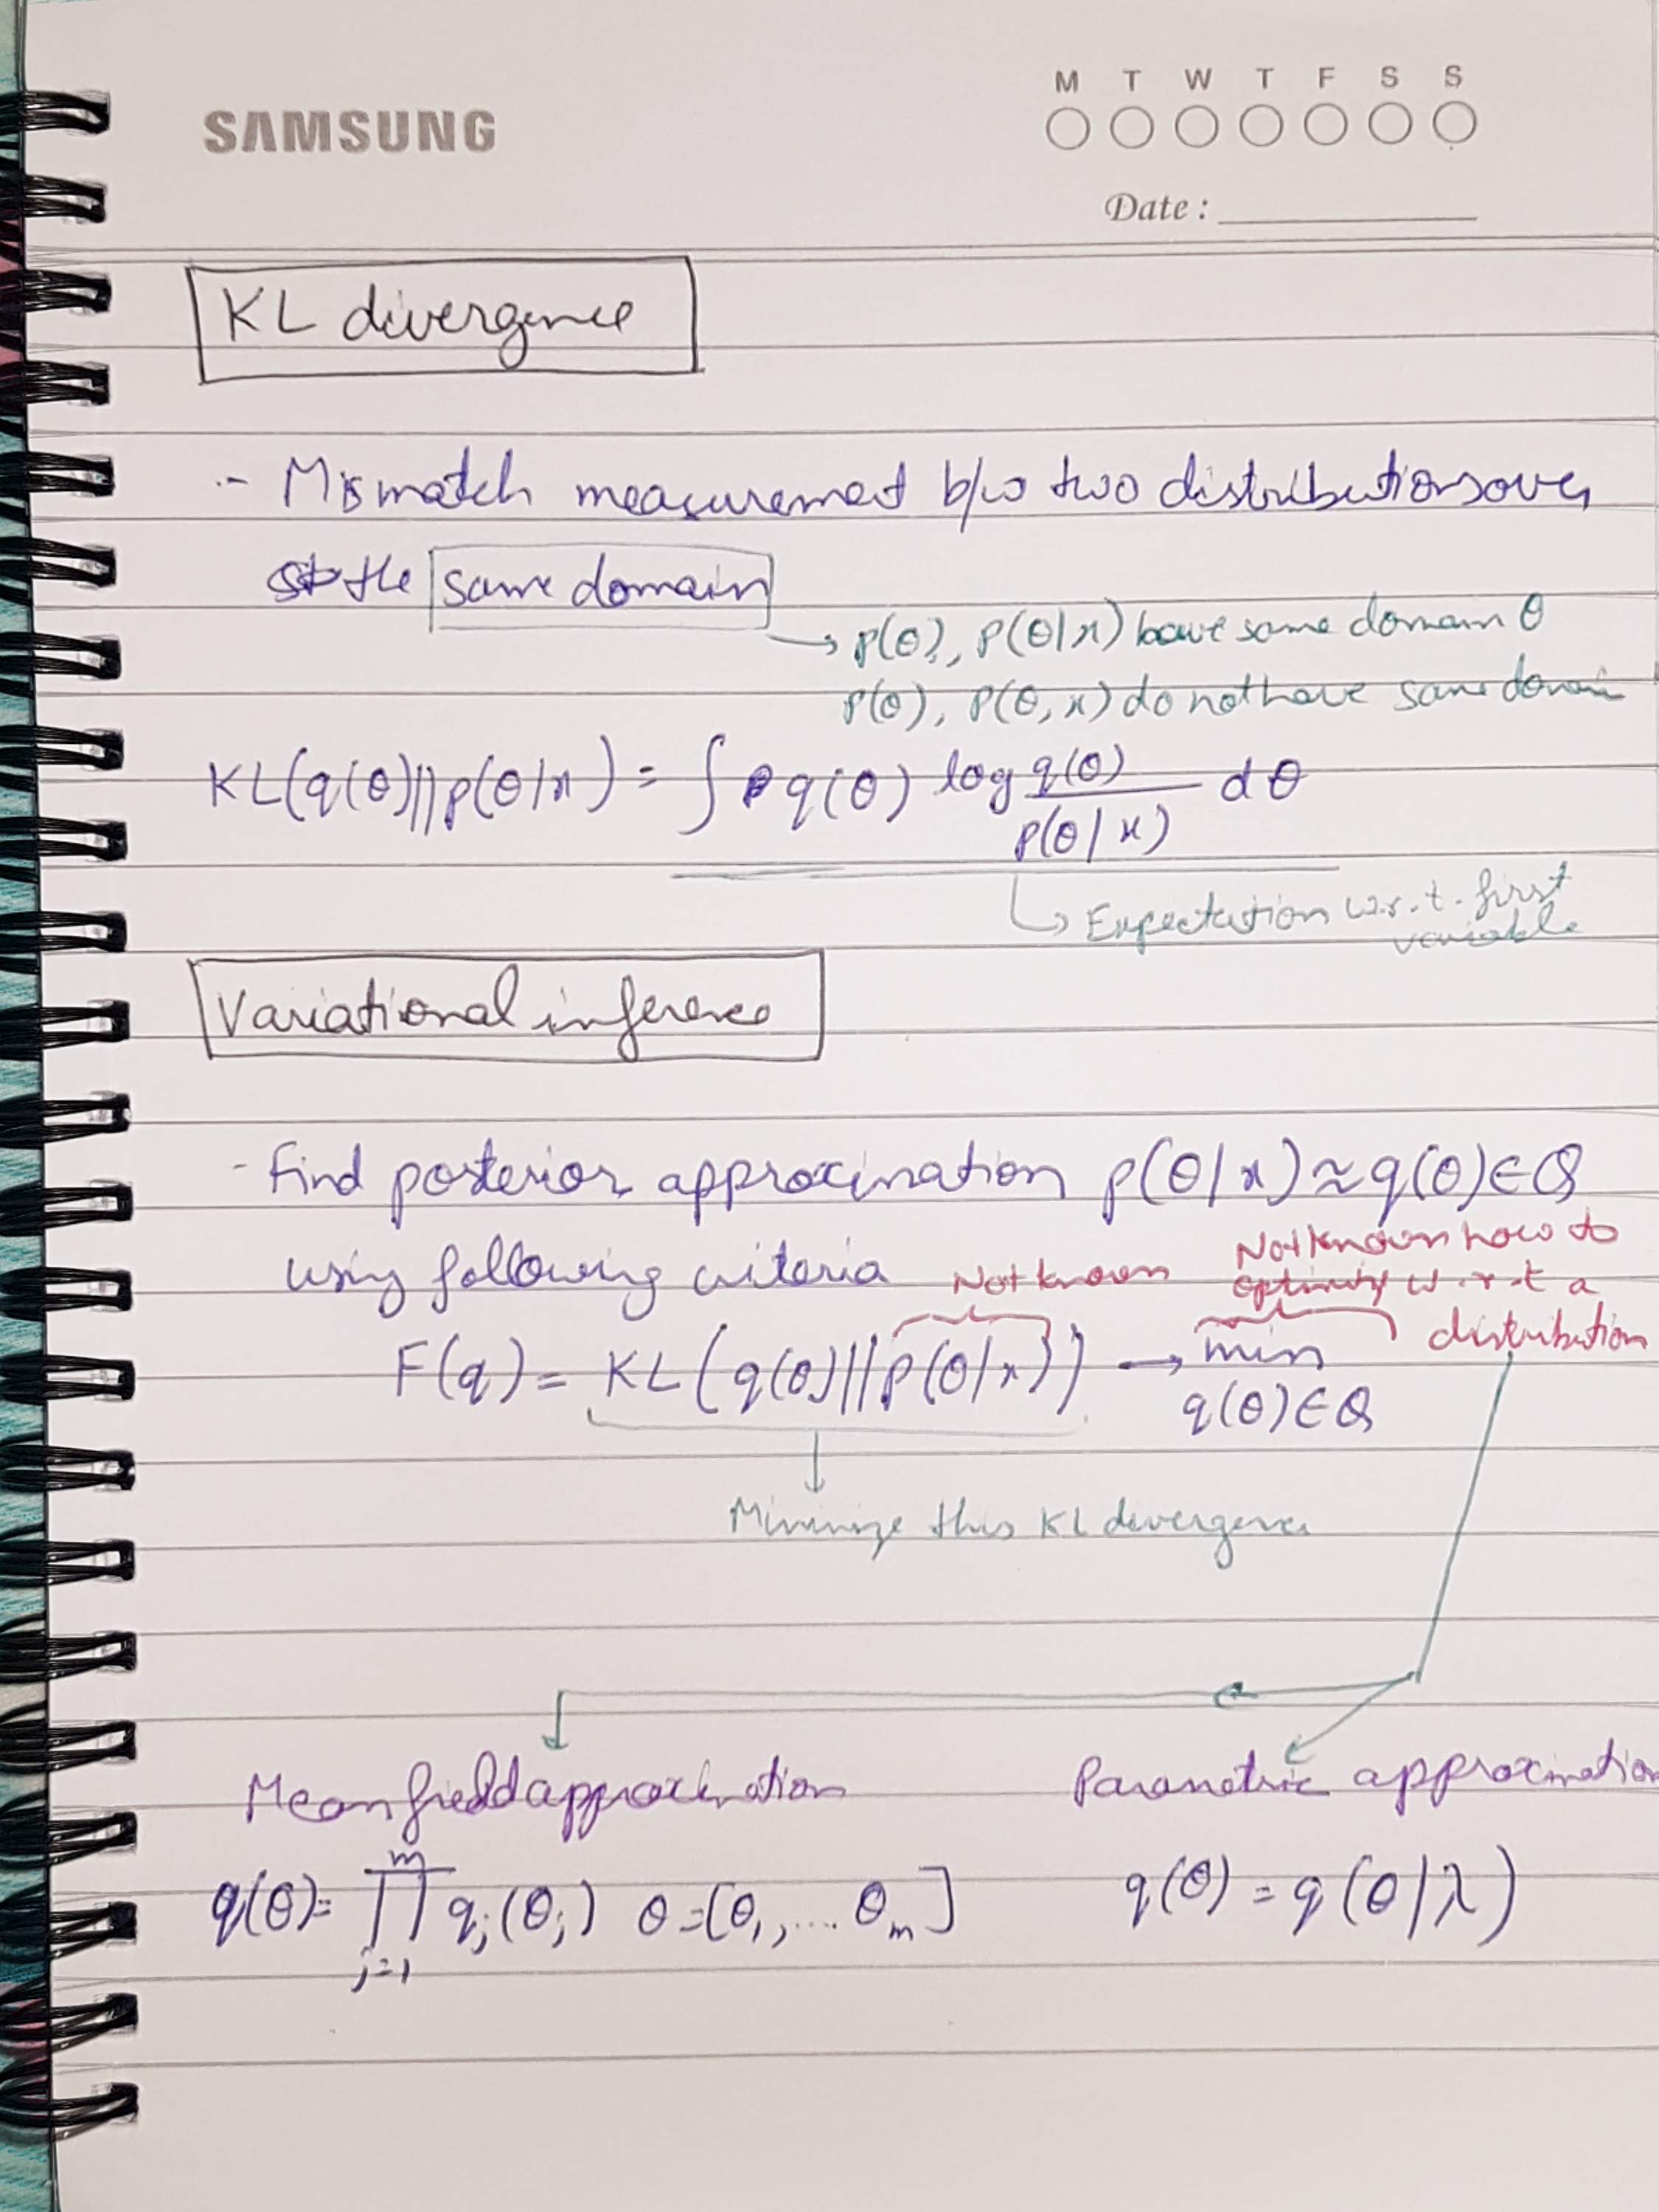 SAMSUNG
M T W T F S S
Date :
KL divergence
- Mismatch measurement b/w two distributions over
the same domain
→ p(θ), p(θ|x) have same domain θ
p(θ), p(θ,x) do not have same domain
KL(q(θ)||p(θ|x) = ∫ q(θ) log q(θ)/p(θ|x) dθ
↳ Expectation w.r.t. first
variable
Variational inference
- Find posterior approximation p(θ|x) ≈ q(θ) ∈ Q
using following criteria
Not known
Not known how to
optimize w.r.t a
distribution
F(q) = KL(q(θ)||p(θ|x)) → min
q(θ) ∈ Q
Minimize this KL divergence
Mean field approximation
Parametric approximation
q(θ) = ∏_{j=1}^{m} q_j(θ_j) θ = [θ_1, .... θ_m]
q(θ) = q(θ|λ)